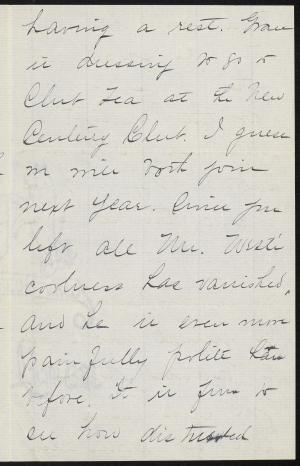 having a rest. Grace
is dressing to go to
Club Tea at the New
Century Club. I guess
we will both join
next year. Since you
left all Mr. West's
coolness has vanished,
and he is even more
painfully polite than
before. It is fun to
see how distrusted